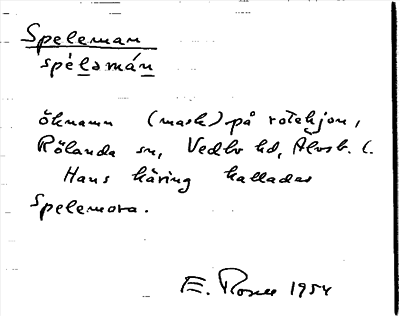 Speleman
spèlǝmán
öknamn (mask) på rotehjon,
Rölanda sn, Vedbo hd, Älvsb. l.
Hans käring kallades
Spelemora.
E. Rosell 1954